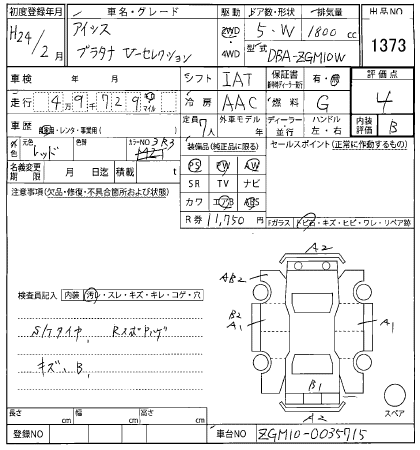 初度登録年月 車名・グレード 駆動 ドア数・形状 排気量 出品NO
H24/2月 アイシス 2WD 5・W 1800cc 1373
プラタナ Vーセレクション 4WD 型式 DBA-ZGM10W
車検 年 月 シフト IAT 保証書 有・無 評価点
走行 4万9729 キロ マイル 冷房 AAC 燃料 G 4
車歴 自家用・レンタ・事業用( ) 定員 7人 外車モデル 年 ディーラー 並行 ハンドル 左・右 内装評価 B
外色 元色 レッド 色替 カラーNO 3R3 装備品(純正品に限る) セールスポイント(正常に作動するもの)
名義変更期限 月 日迄 積載 t PS PW AW
注意事項(欠品・修復・不具合箇所および状態) SR TV ナビ
カワ エアB ABS
R券 11,750円 Fガラス トビ石・キズ・ヒビ・ワレ・リペア跡
A2
AB2
検査員記入 内装 汚レ・スレ・キズ・キレ・コゲ・穴
B2
A1 A1
S/Tタイヤ
キズ、B、
B1
A2
スペア
長さ cm 幅 cm 高さ cm
登録NO 車台NO ZGM10-0035715